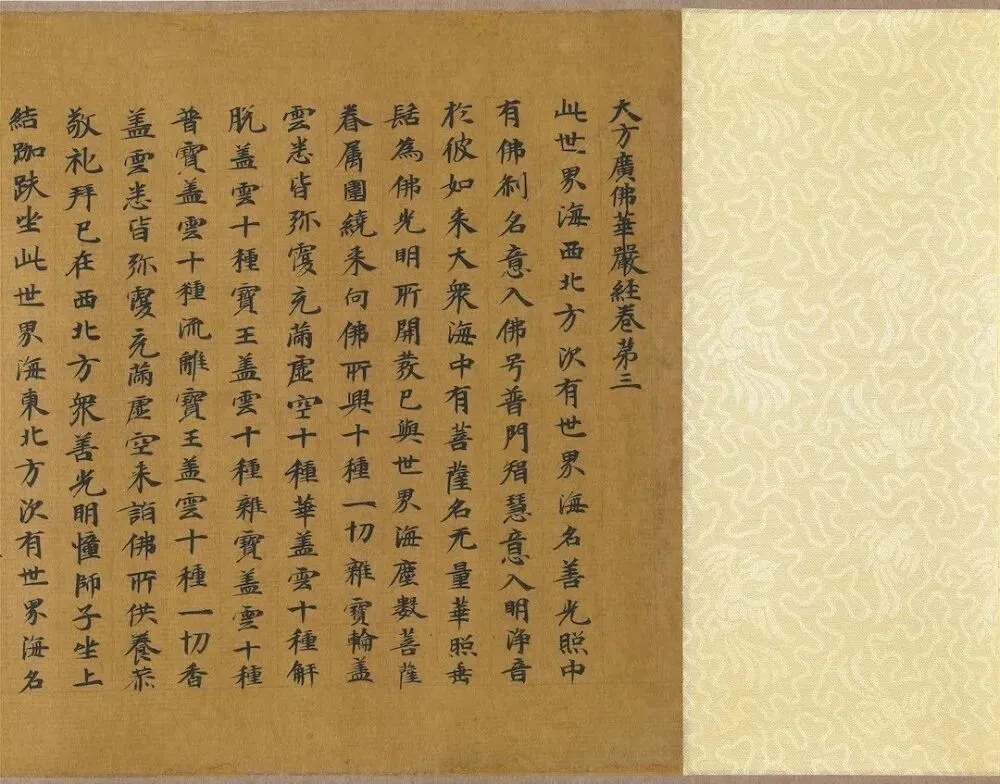 大方廣佛華嚴經卷第三
此世界海西北方次有世界海名善光照中
有佛刹名意入佛号普門智慧意入明淨音
於彼如来大衆海中有菩薩名无量華照垂
髻為佛光明所開發已與世界海塵數菩薩
眷属圍繞来向佛所興十種一切雜寶輪盖
雲悉皆弥覆充滿虚空十種華盖雲十種解
脱盖雲十種寶王盖雲十種雜寶盖雲十種
普寶盖雲十種流離寶王盖雲十種一切香
盖雲悉皆弥覆充滿虚空来詣佛所供養恭
敬礼拜已在西北方衆善光明憧師子坐上
結跏趺坐此世界海東北方次有世界海名